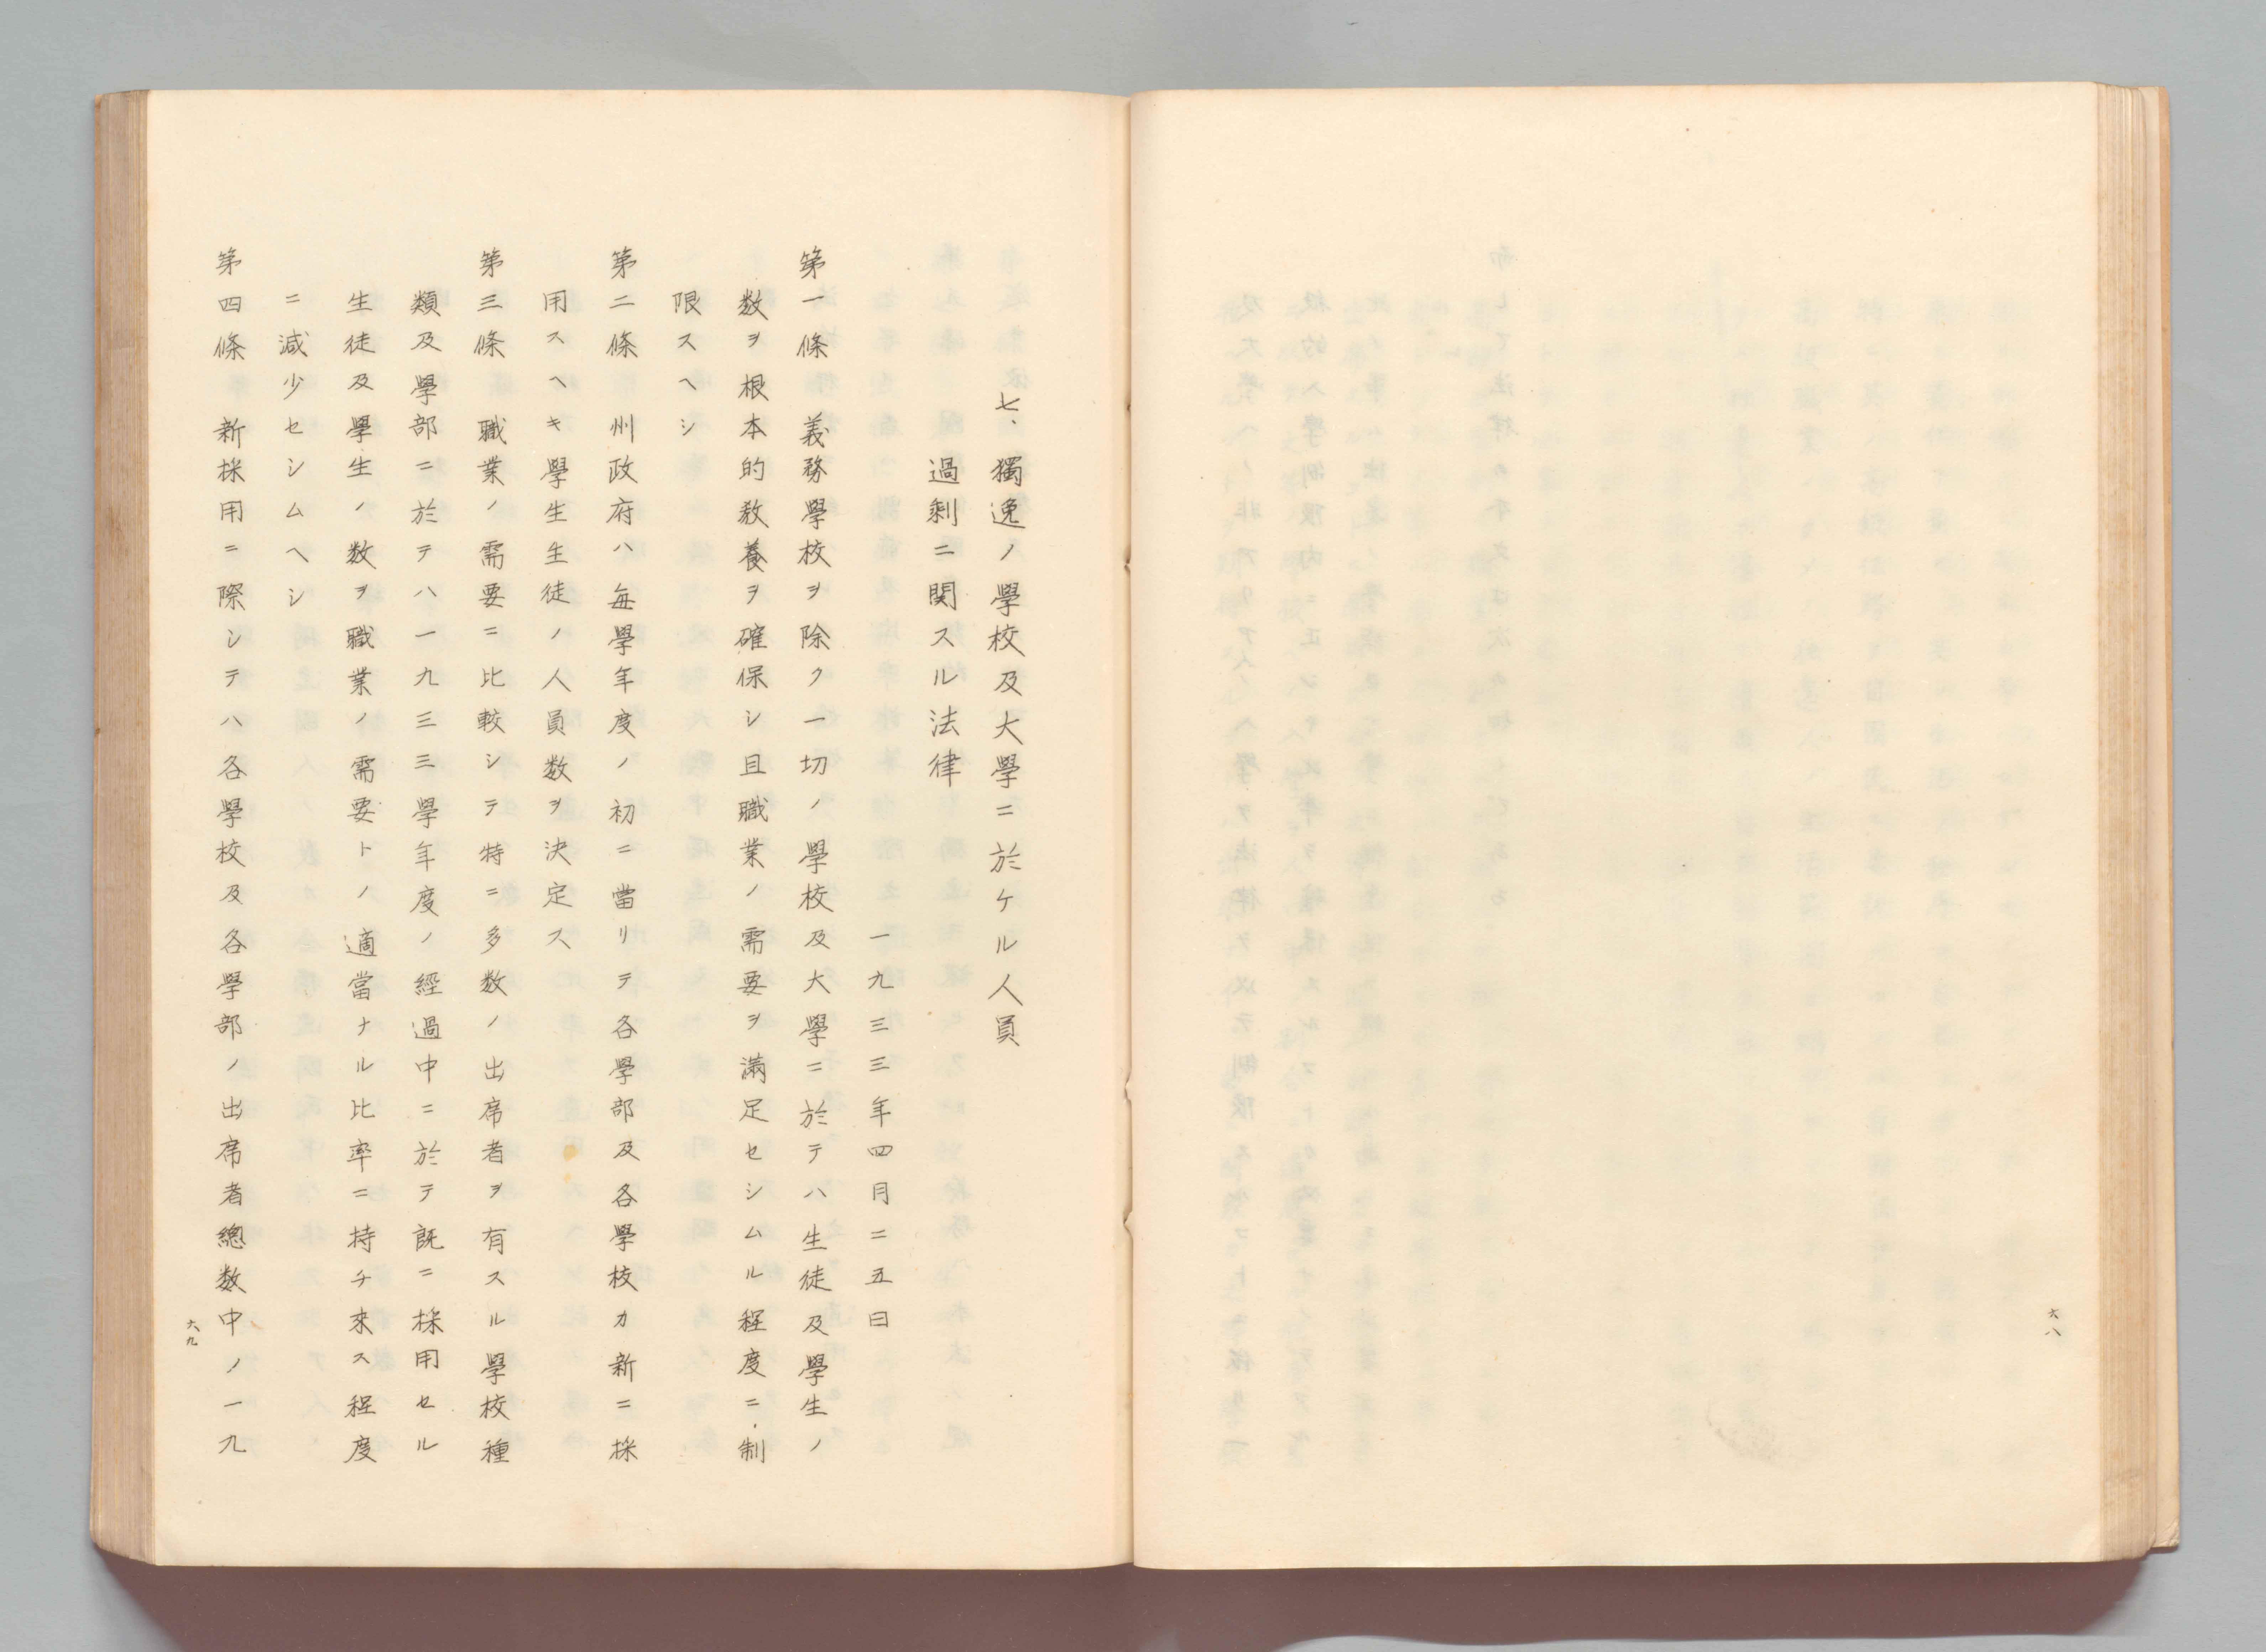 六八
七、獨逸ノ學校及大學ニ於ケル人員
過剰ニ関スル法律
一九三三年四月二五日
第一條　義務學校ヲ除ク一切ノ學校及大學ニ於テハ生徒及學生ノ
数ヲ根本的教養ヲ確保シ且職業ノ需要ヲ滿足セシムル程度ニ制
限スヘシ
第二條　州政府ハ毎學年度ノ初ニ當リテ各學部及各學校カ新ニ採
用スヘキ學生生徒ノ人員数ヲ決定ス
第三條　職業ノ需要ニ比較シテ特ニ多数ノ出席者ヲ有スル學校種
類及學部ニ於テハ一九三三學年度ノ經過中ニ於テ既ニ採用セル
生徒及學生ノ数ヲ職業ノ需要トノ適當ナル比率ニ持チ來ス程度
ニ減少セシムヘシ
第四條　新採用ニ際シテハ各學校及各學部ノ出席者總数中ノ一九
六九